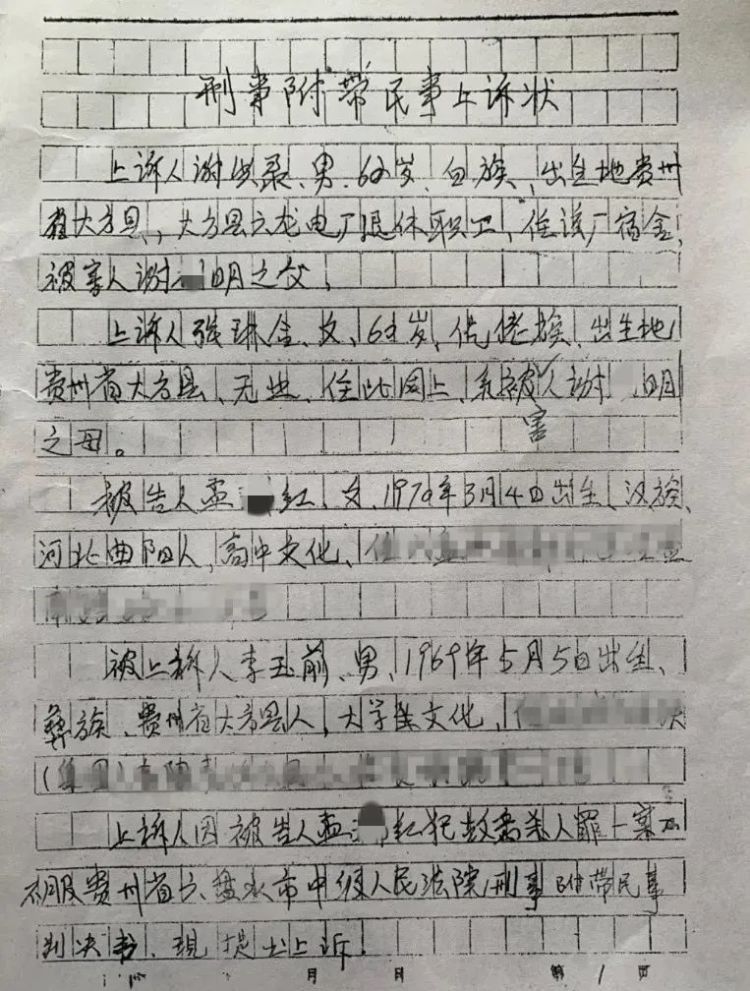 刑事附带民事上诉状
上诉人谢洪录、男、62岁、白族、出生地贵州
省大方县、大方县六龙电厂退休职工、住该厂宿舍、
被害人谢 明之父。
上诉人张琳会、女、63岁、仡佬族、出生地
贵州省大方县、无业、住址同上、系被害人谢 明
之母。
被告人孟 红、女、1970年3月4日出生、汉族、
河北曲阳人、高中文化、住
被上诉人李玉前、男、1969年5月5日出生、
彝族、贵州省大方县人、大学文化、
上诉人因被告人孟 红犯故意杀人罪一案
不服贵州省六盘水市中级人民法院刑事附带民事
判决书、现提出上诉.
月 日 第 1 页